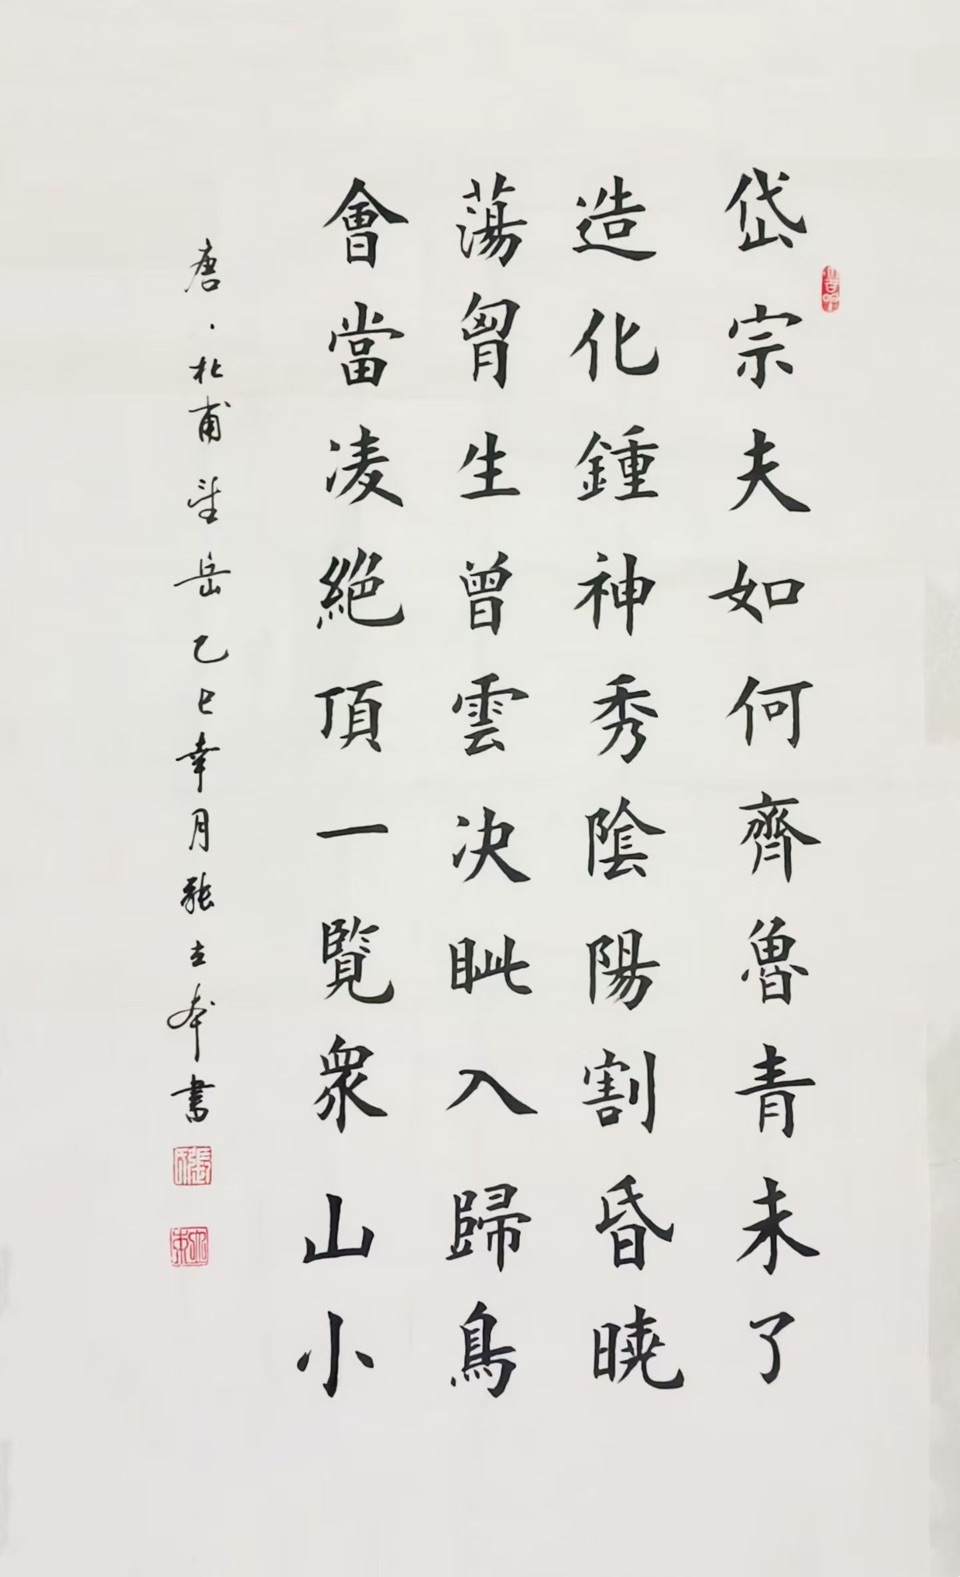 岱宗夫如何齊魯青未了
造化鍾神秀陰陽割昏曉
蕩胷生曾雲決眦入歸鳥
會當凌絕頂一覽衆山小
唐·杜甫望岳乙巳幸月張立本書